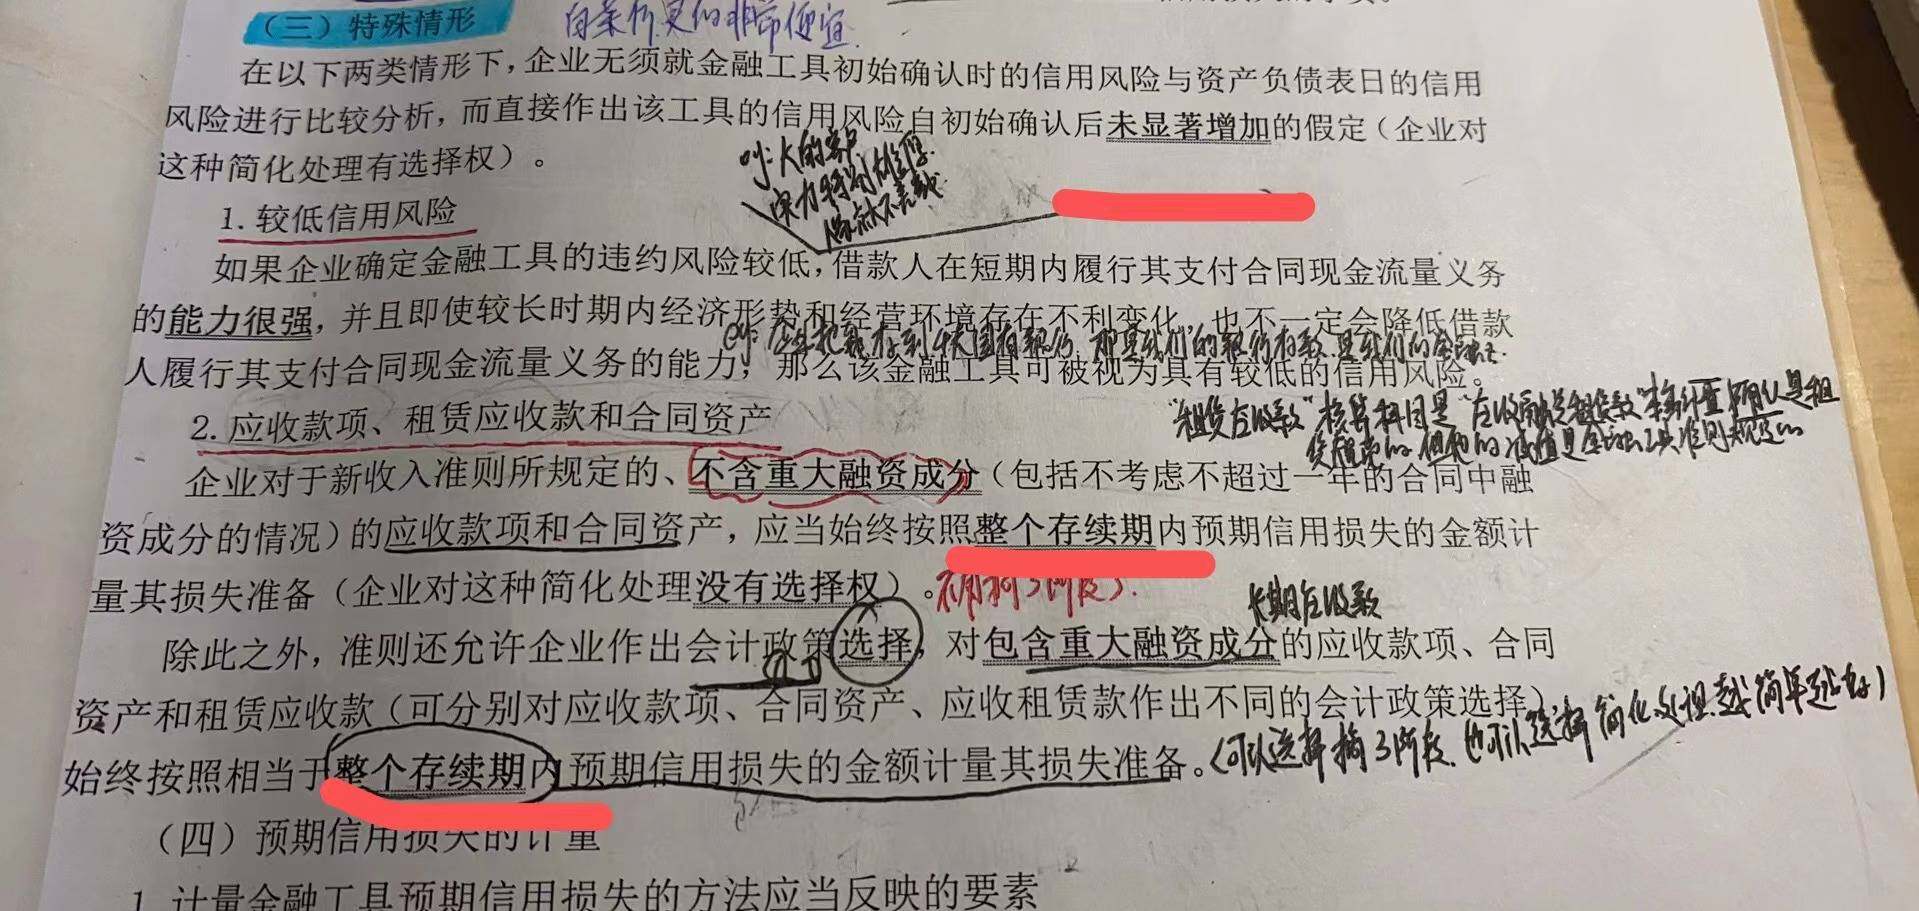 （三）特殊情形
在以下两类情形下，企业无须就金融工具初始确认时的信用风险与资产负债表日的信用
风险进行比较分析，而直接作出该工具的信用风险自初始确认后未显著增加的假定（企业对
这种简化处理有选择权）。
大的客户
实力特别雄厚
1. 较低信用风险
如果企业确定金融工具的违约风险较低，借款人在短期内履行其支付合同现金流量义务
的能力很强，并且即使较长时期内经济形势和经营环境存在不利变化，也不一定会降低借款
人履行其支付合同现金流量义务的能力，那么该金融工具可被视为具有较低的信用风险。
2. 应收款项、租赁应收款和合同资产
“租赁应收款”核算科目是“应收融资租赁款”
企业对于新收入准则所规定的、不含重大融资成分（包括不考虑不超过一年的合同中融
资成分的情况）的应收款项和合同资产，应当始终按照整个存续期内预期信用损失的金额计
量其损失准备（企业对这种简化处理没有选择权）。
长期应收款
除此之外，准则还允许企业作出会计政策选择，对包含重大融资成分的应收款项、合同
资产和租赁应收款（可分别对应收款项、合同资产、应收租赁款作出不同的会计政策选择），
始终按照相当于整个存续期内预期信用损失的金额计量其损失准备。
（可以选择搞3阶段，也可以选择简化处理，越简单越好）
（四）预期信用损失的计量
1. 计量金融工具预期信用损失的方法应当反映的要素